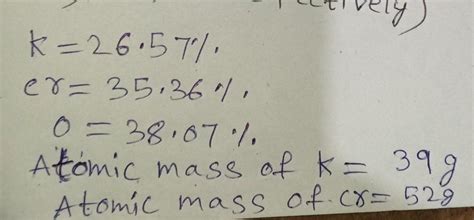 ectively)
K = 26.57%.
cr = 35.36%.
O = 38.07%.
Atomic mass of K = 39g
Atomic mass of cr = 52g